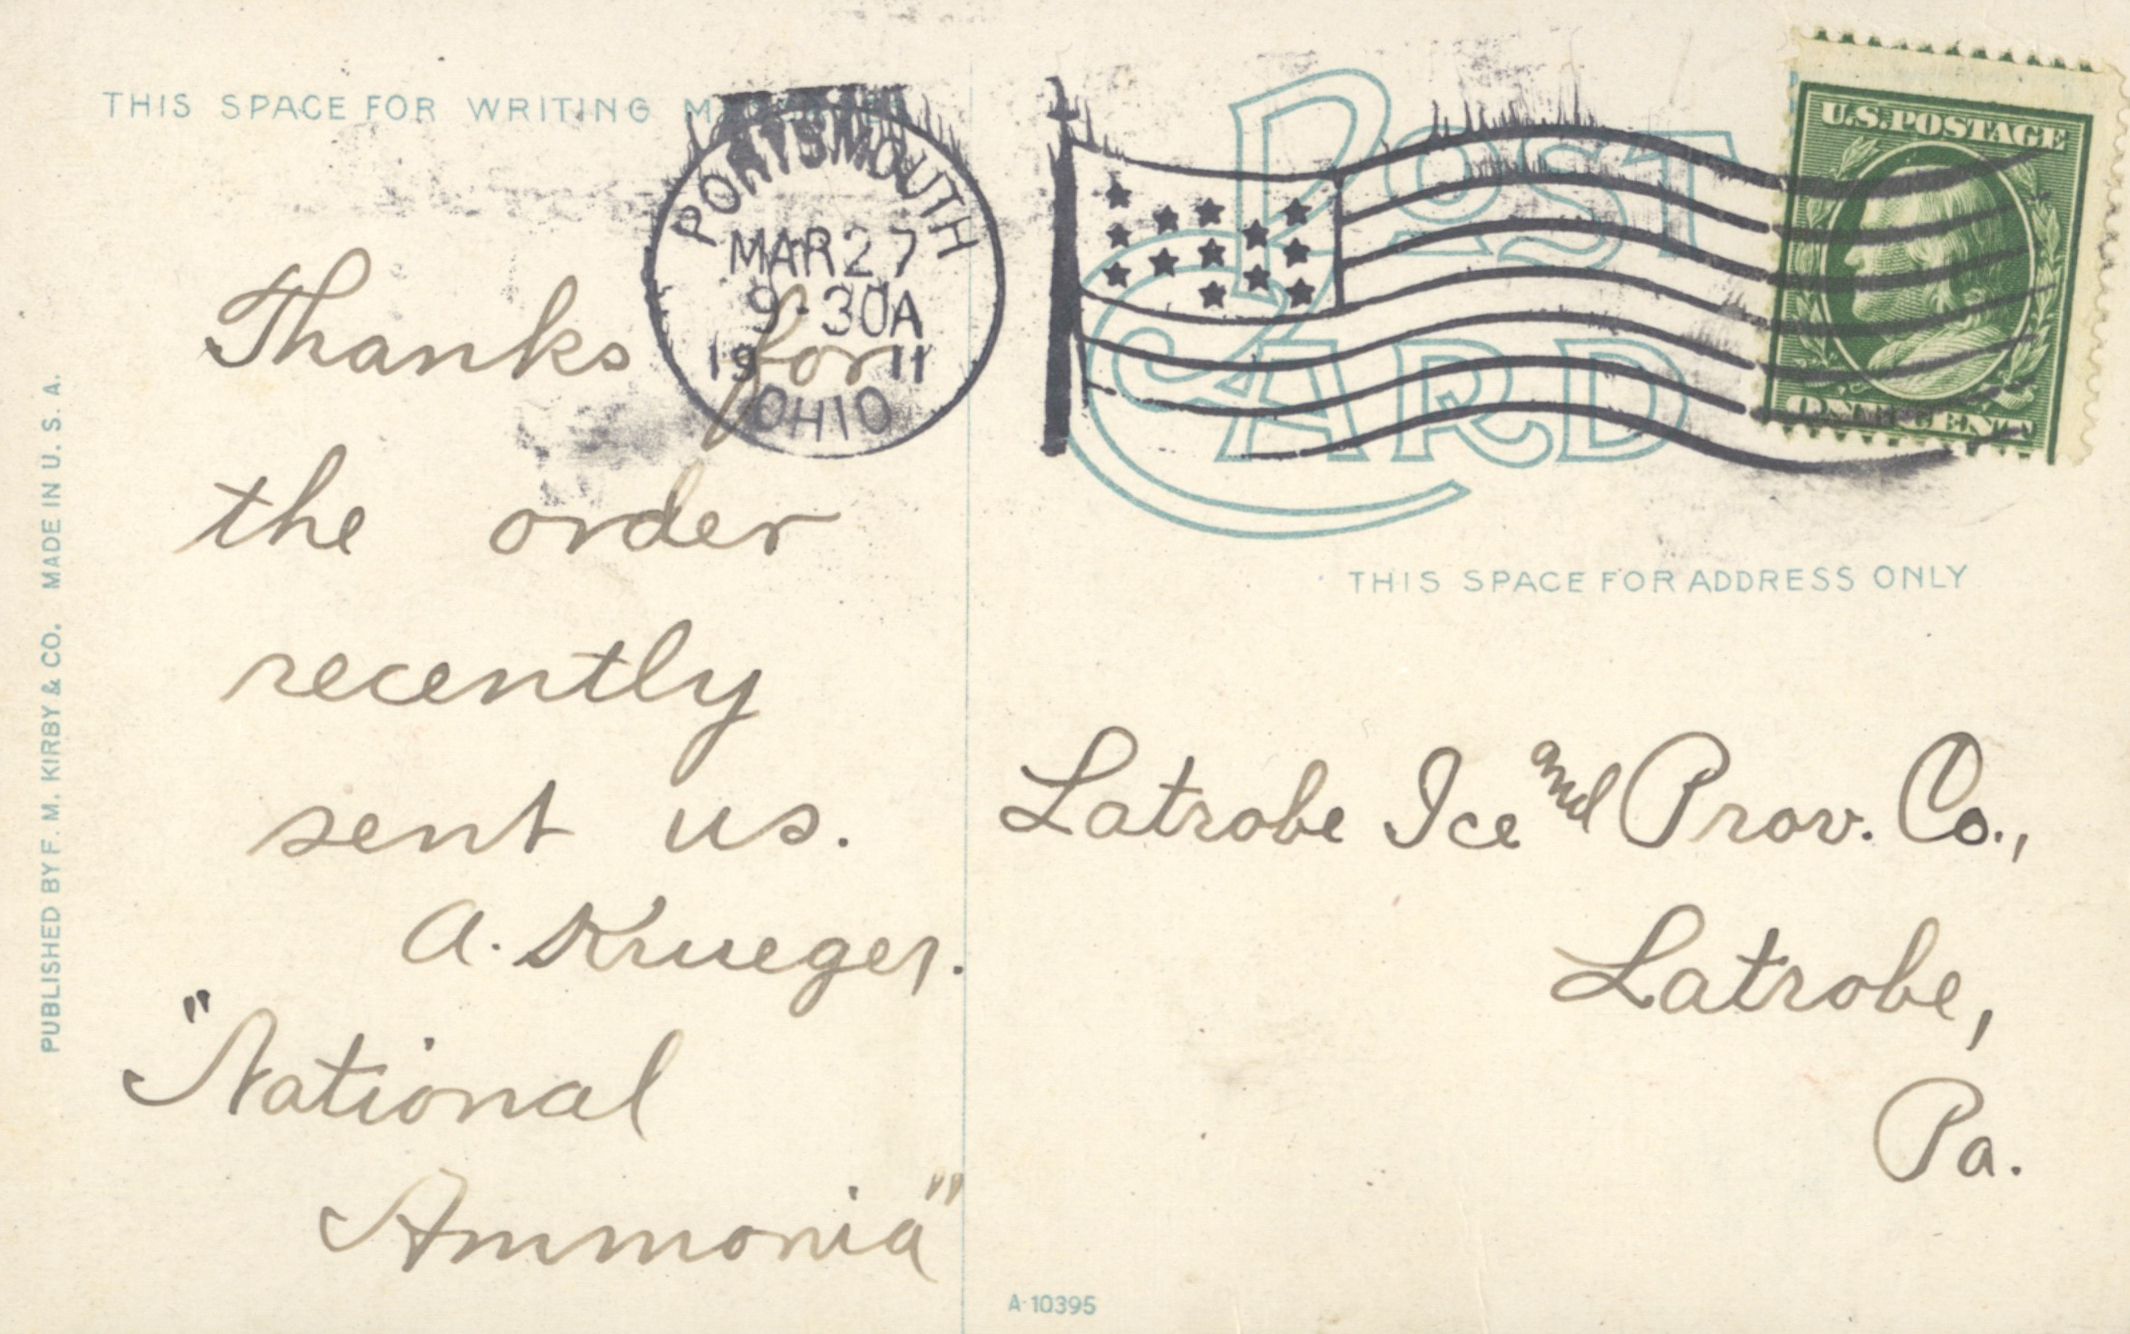 THIS SPACE FOR WRITING
PORTSMOUTH
MAR 27
9-30A
1911
OHIO
POST
CARD
U.S.POSTAGE
ONE CENT
Thanks for
the order
recently
sent us.
A. Krueger.
"National
Ammonia"
PUBLISHED BY F. M. KIRBY & CO. MADE IN U. S. A.
THIS SPACE FOR ADDRESS ONLY
Latrobe Ice and Prov. Co.,
Latrobe,
Pa.
A-10395